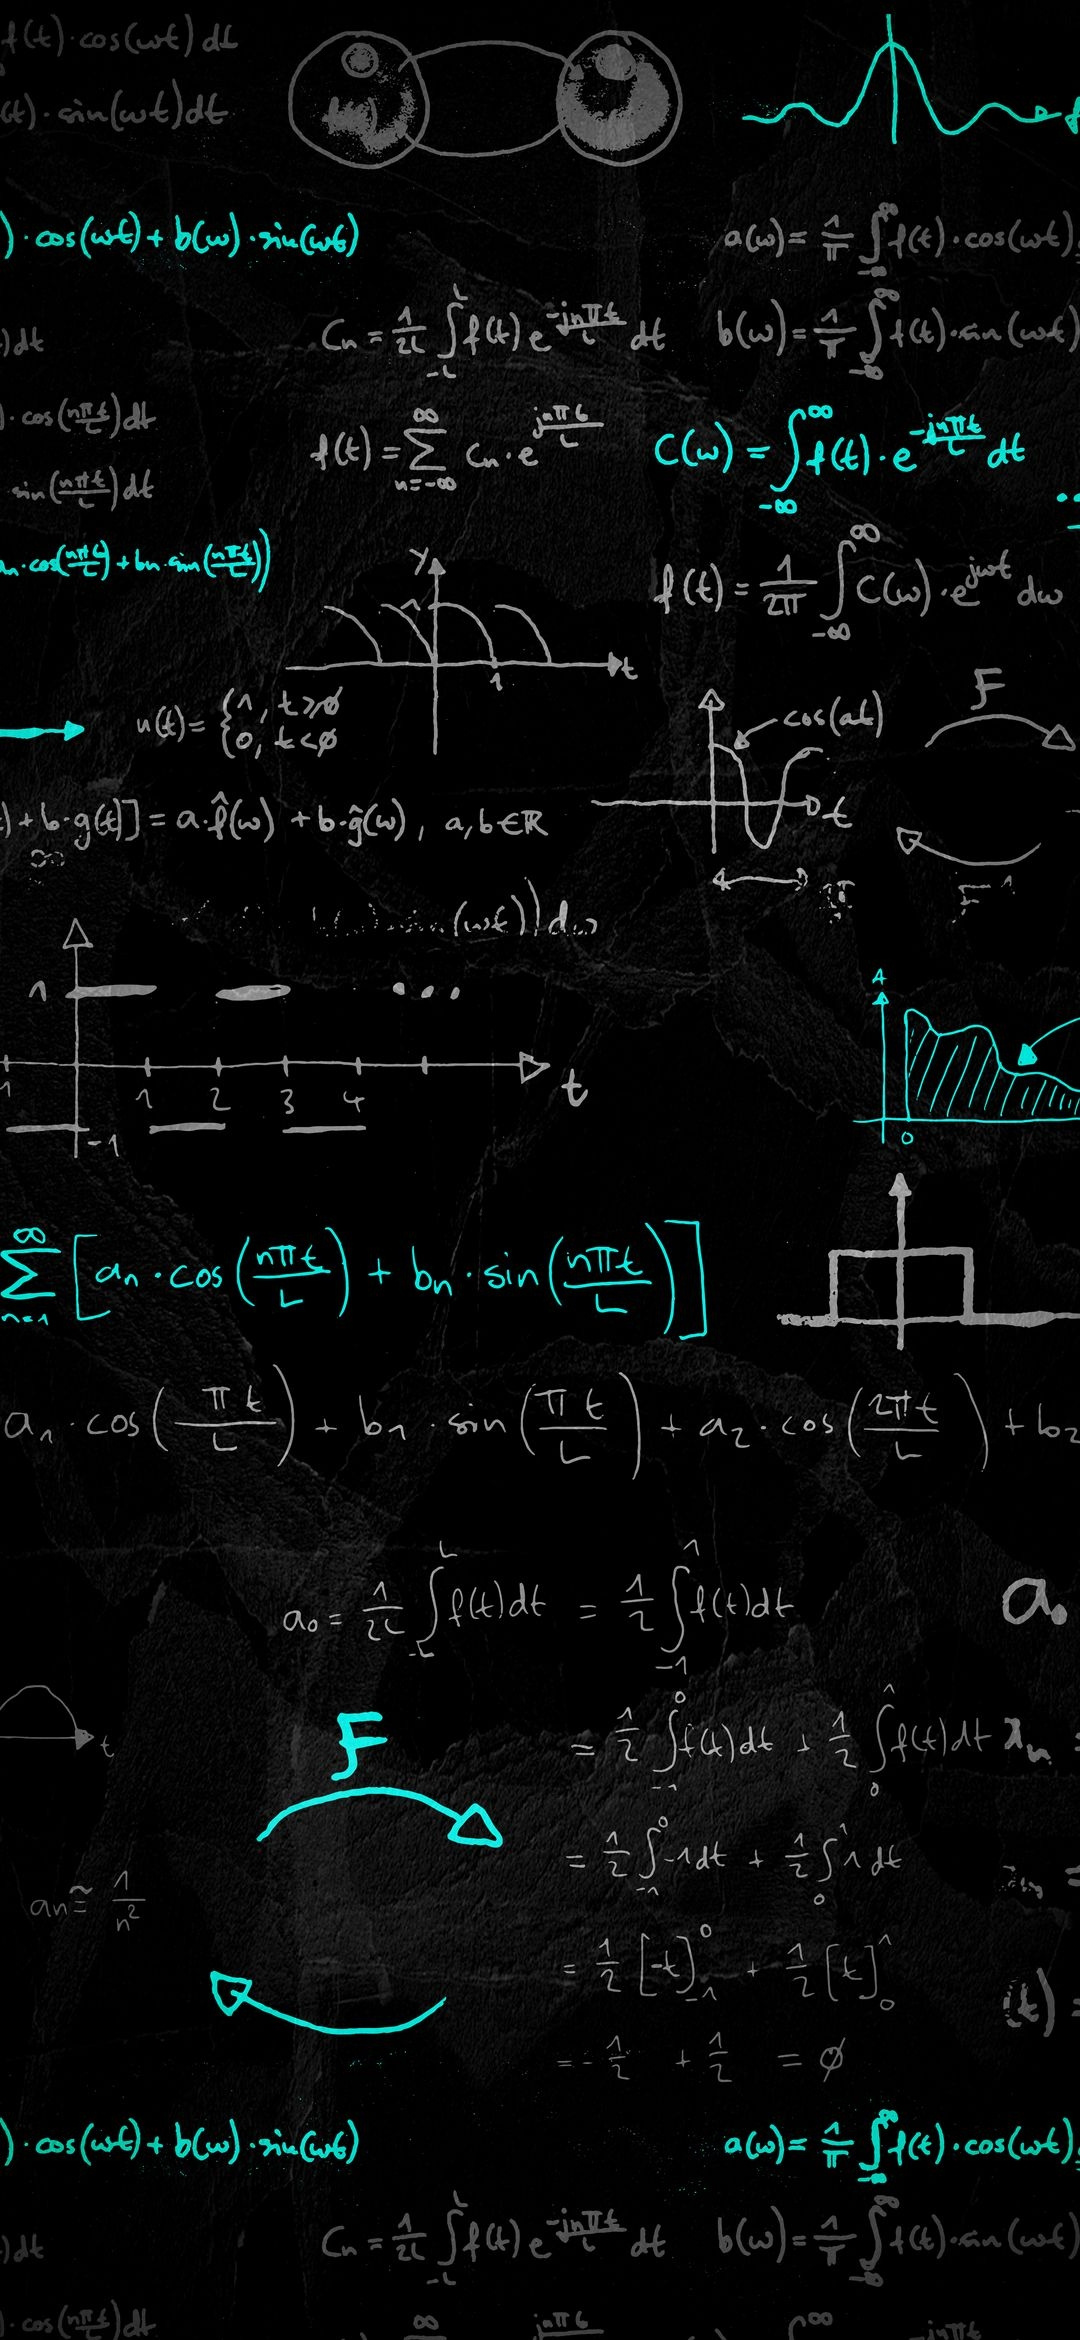 f(t)·cos(ωt)dt
(t)·sin(ωt)dt
)·cos(ωt)+b(ω)·sin(ωt)
a(ω)= 1/π ∫_{-∞}^{∞} f(t)·cos(ωt)
)dt
C_n = 1/2L ∫_{-L}^{L} f(t) e^{-jnπt/L} dt
b(ω)= 1/π ∫_{-∞}^{∞} f(t)·sin(ωt)
·cos(nπt/L)dt
f(t) = ∑_{n=-∞}^{∞} C_n·e^{jnπt/L}
C(ω) = ∫_{-∞}^{∞} f(t)·e^{-jnπt/L} dt
sin(nπt/L)dt
a_n·cos(nπt/L)+b_n·sin(nπt/L))
f(t) = 1/2π ∫_{-∞}^{∞} C(ω)·e^{jωt} dω
y
1
t
1
F
u(t)= {1, t≥0
{0, t<0
cos(at)
t
)+b·g(t)] = a·f̂(ω) + b·ĝ(ω), a,b∈ℝ
∞
(ωt))dω
F^{-1}
1
...
A
1 1 2 3 4
t
-1
0
∑_{n=1}^{∞} [a_n·cos(nπt/L) + b_n·sin(nπt/L)]
a_1·cos(πt/L) + b_1·sin(πt/L) + a_2·cos(2πt/L) + b_2
a_0 = 1/2L ∫_{-L}^{L} f(t)dt = 1/2 ∫_{-1}^{1} f(t)dt
a_0
= 1/2 ∫_{-1}^{0} f(t)dt + 1/2 ∫_{0}^{1} f(t)dt
λ_n =
t
F
= 1/2 ∫_{-1}^{0} -1dt + 1/2 ∫_{0}^{1} 1dt
an ≅ 1/n²
= 1/2 [-t]_{-1}^{0} + 1/2 [t]_{0}^{1}
(t) =
= -1/2 + 1/2 = 0
)·cos(ωt)+b(ω)·sin(ωt)
a(ω)= 1/π ∫_{-∞}^{∞} f(t)·cos(ωt)
)dt
C_n = 1/2L ∫_{-L}^{L} f(t) e^{-jnπt/L} dt
b(ω)= 1/π ∫_{-∞}^{∞} f(t)·sin(ωt)
·cos(nπt/L)dt
∞
jnπt
∞
-jnπt